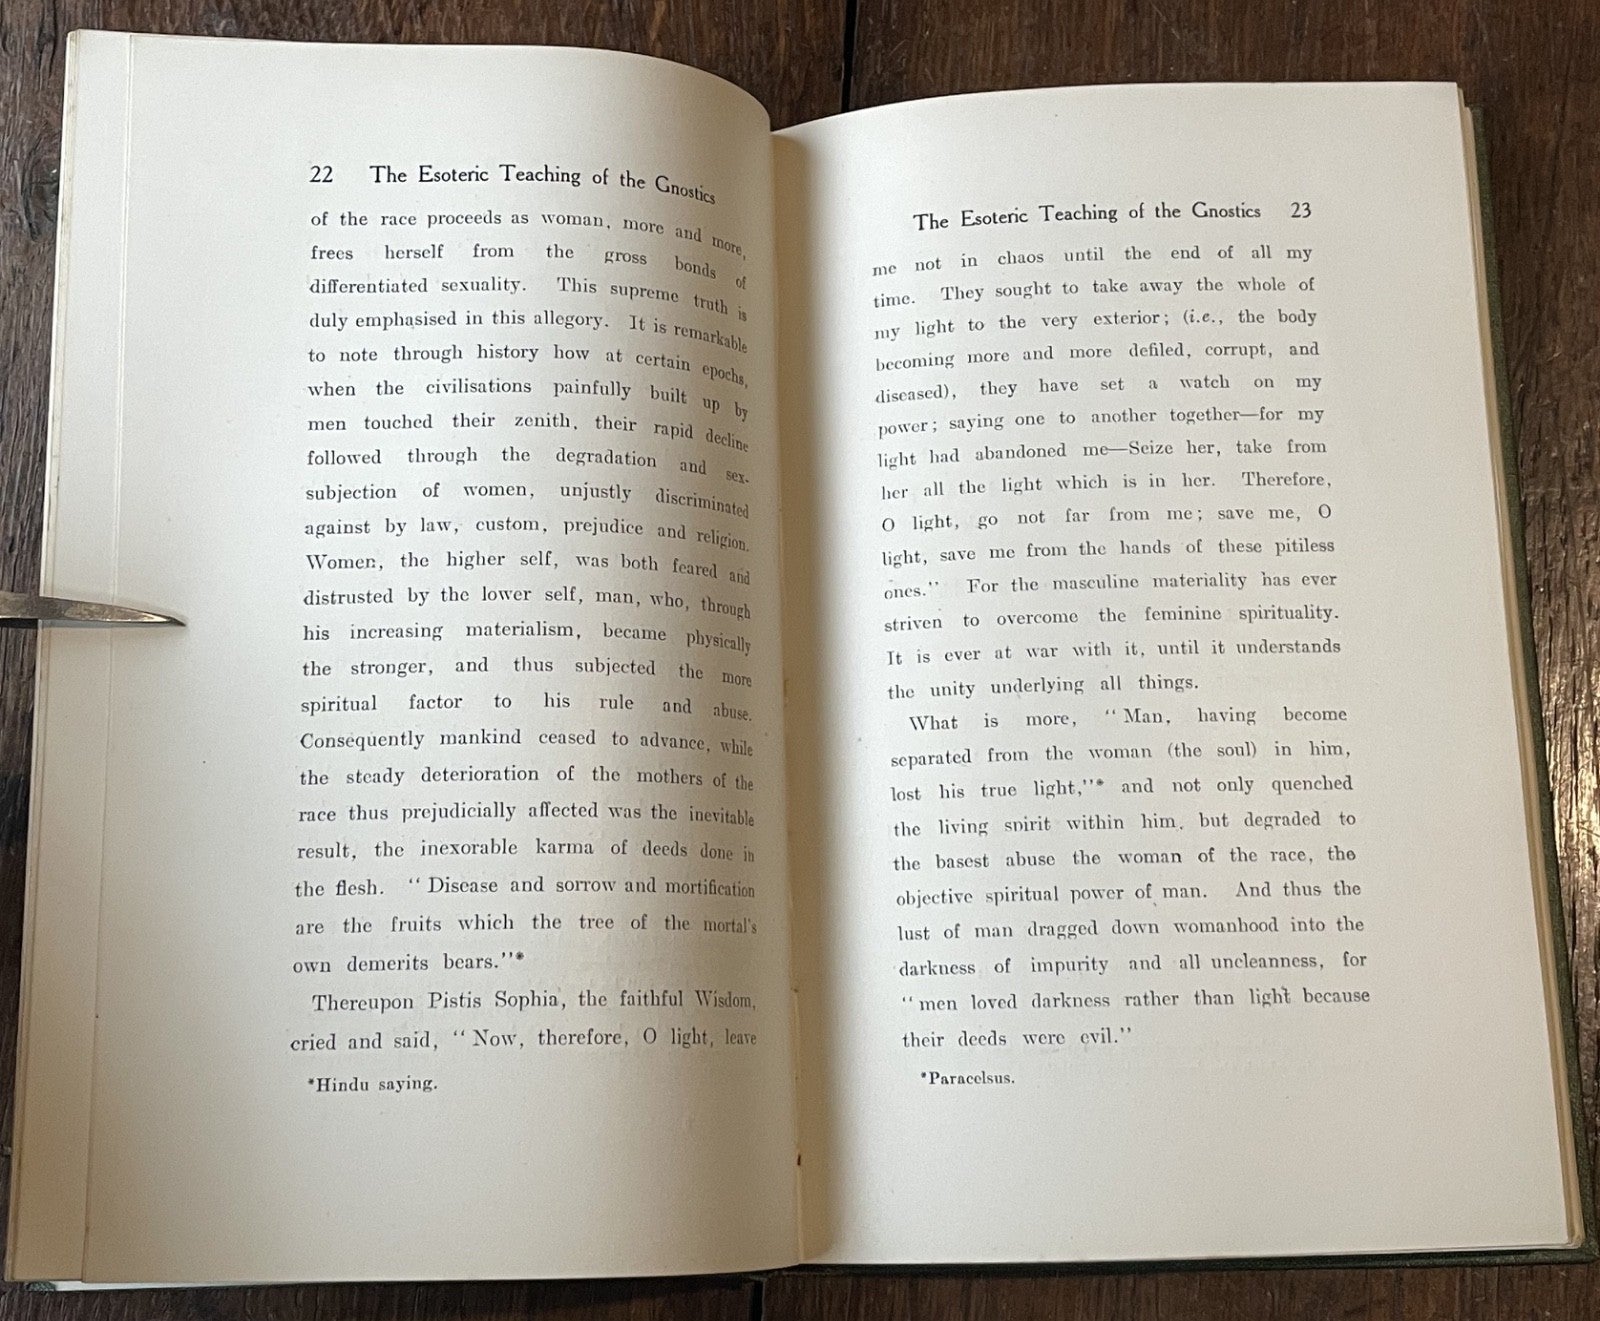 22 The Esoteric Teaching of the Gnostics
of the race proceeds as woman, more and more,
frees herself from the gross bonds of
differentiated sexuality. This supreme truth is
duly emphasised in this allegory. It is remarkable
to note through history how at certain epochs,
when the civilisations painfully built up by
men touched their zenith, their rapid decline
followed through the degradation and sex-
subjection of women, unjustly discriminated
against by law, custom, prejudice and religion.
Women, the higher self, was both feared and
distrusted by the lower self, man, who, through
his increasing materialism, became physically
the stronger, and thus subjected the more
spiritual factor to his rule and abuse.
Consequently mankind ceased to advance, while
the steady deterioration of the mothers of the
race thus prejudicially affected was the inevitable
result, the inexorable karma of deeds done in
the flesh. "Disease and sorrow and mortification
are the fruits which the tree of the mortal's
own demerits bears."*
Thereupon Pistis Sophia, the faithful Wisdom,
cried and said, "Now, therefore, O light, leave
*Hindu saying.
The Esoteric Teaching of the Gnostics 23
me not in chaos until the end of all my
time. They sought to take away the whole of
my light to the very exterior; (i.e., the body
becoming more and more defiled, corrupt, and
diseased), they have set a watch on my
power; saying one to another together—for my
light had abandoned me—Seize her, take from
her all the light which is in her. Therefore,
O light, go not far from me; save me, O
light, save me from the hands of these pitiless
ones." For the masculine materiality has ever
striven to overcome the feminine spirituality.
It is ever at war with it, until it understands
the unity underlying all things.
What is more, "Man, having become
separated from the woman (the soul) in him,
lost his true light,"* and not only quenched
the living spirit within him, but degraded to
the basest abuse the woman of the race, the
objective spiritual power of man. And thus the
lust of man dragged down womanhood into the
darkness of impurity and all uncleanness, for
"men loved darkness rather than light because
their deeds were evil."
*Paracelsus.